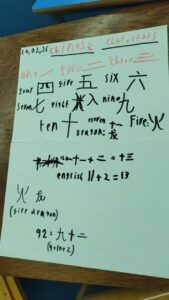 20,02,26 chinese characters
one 一 two 二 three 三
four 四 five 五 six 六
seven 七 eight 八 nine 九
ten 十 dragon: 龙 Fire: 火
十一 + 二 = 十三
english 11+2=13
火 龙
(fire dragon)
92 = 九十二
(9+10+2)